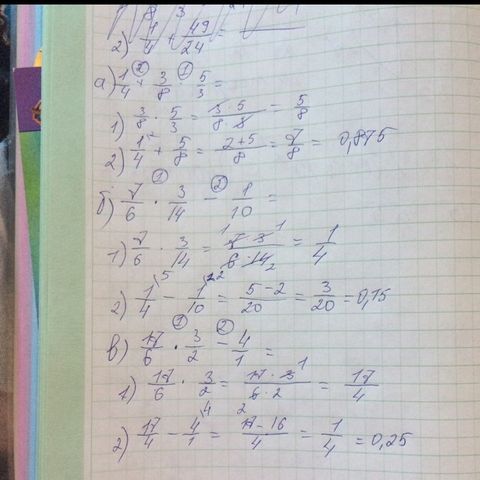 2) 1/4 + 49/24 =
а) 1/4 + 3/8 · 5/3 =
1) 3/8 · 5/3 = 3·5/8·3 = 5/8
2) 1/4 + 5/8 = 2+5/8 = 7/8 = 0,875
б) 7/6 · 3/14 - 1/10 =
1) 7/6 · 3/14 = 7·3/6·14 = 1/4
2) 1/4 - 1/10 = 5-2/20 = 3/20 = 0,15
в) 17/6 · 3/2 - 4/1 =
1) 17/6 · 3/2 = 17·3/6·2 = 17/4
2) 17/4 - 4/1 = 17-16/4 = 1/4 = 0,25